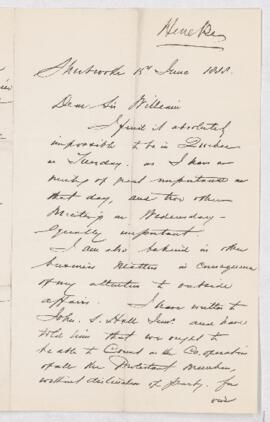 Heneker
Sherbrooke 15 June
Dear Sir William
I find it absolutely
impossible to be in Quebec
on Tuesday. as I have a
meeting of great importance on
that day, and two other
Meetings on Wednesday —
Equally important
I am also behind in other
business Matters in consequence
of my attention to outside
affairs. I have written to
John. S. Hall Junr. and have
told him that we ought to
be able to Count on the Co.operation
of all the Protestant Members,
without distinction of party. for
our